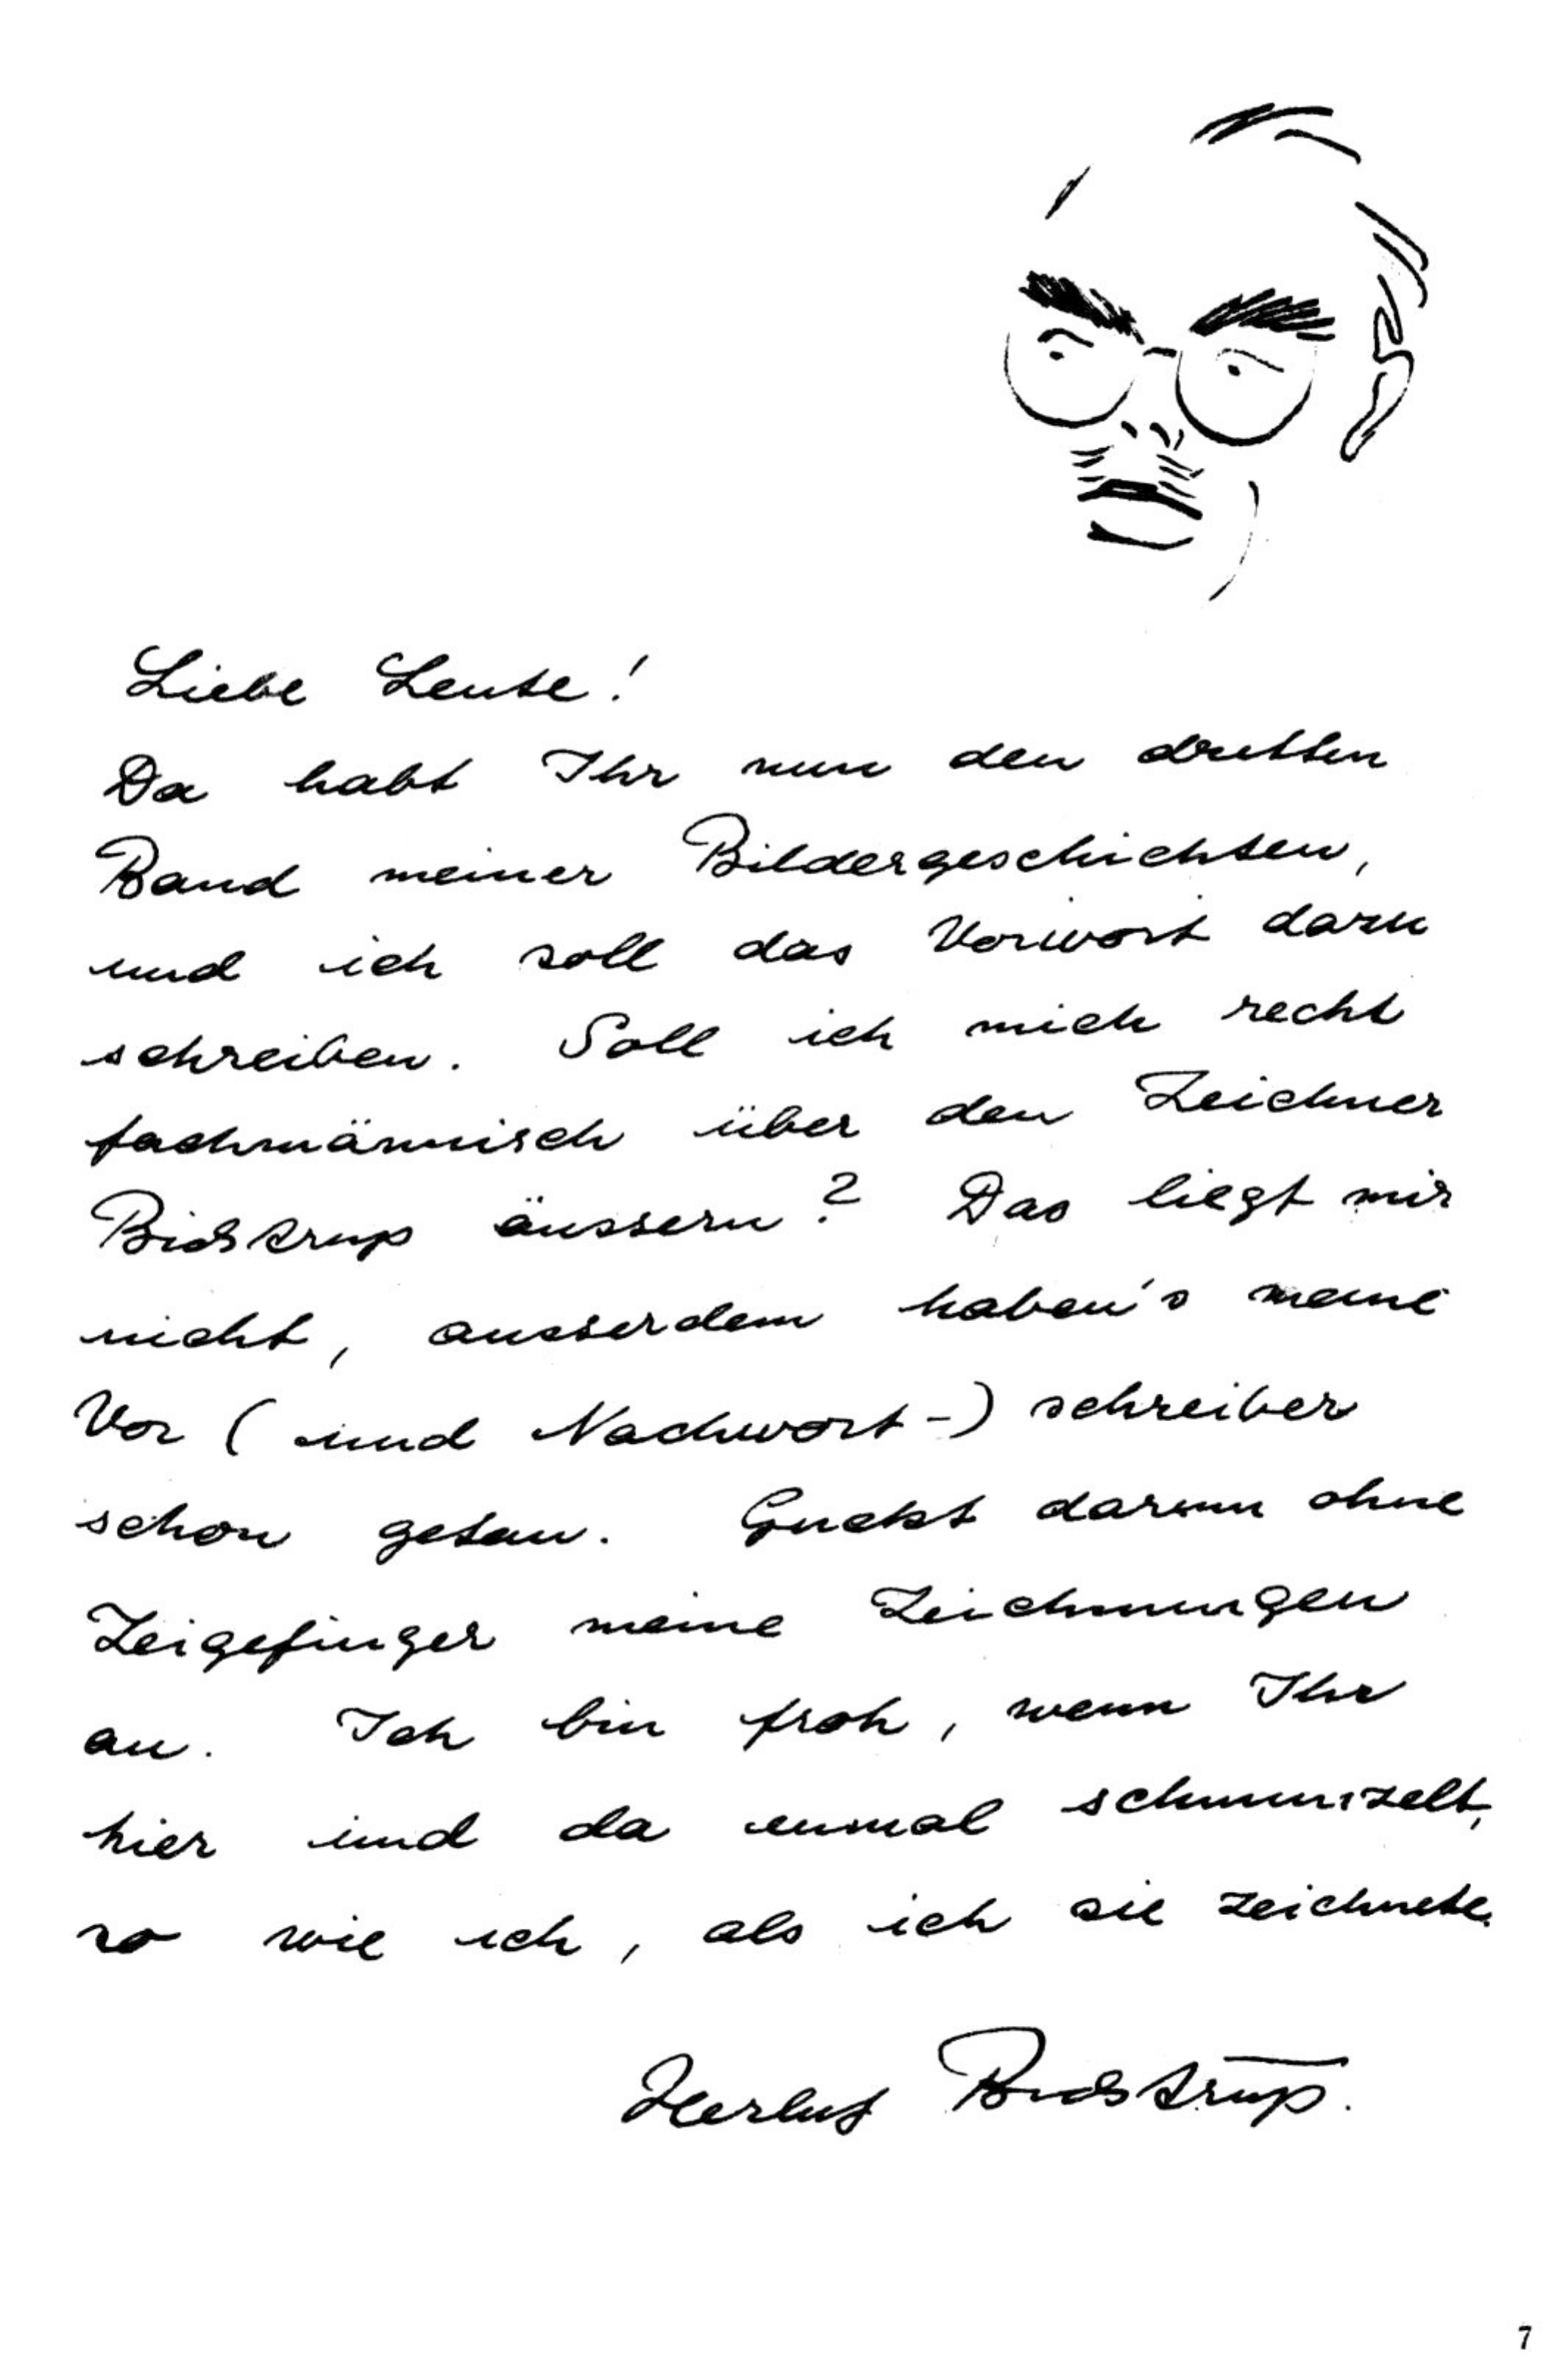 Liebe Leute!
Da habt Ihr nun den dritten
Band meiner Bildergeschichten,
und ich soll das Vorwort dazu
schreiben. Soll ich mich recht
fachmännisch über den Zeichner
Bidstrup äussern? Das liegt mir
nicht, ausserdem haben's meine
Vor (und Nachwort-) schreiber
schon getan. Guckt darum ohne
Zeigefinger meine Zeichnungen
an. Ich bin froh, wenn Ihr
hier und da einmal schmunzelt,
so wie ich, als ich sie zeichnete.
Herluf Bidstrup.
7